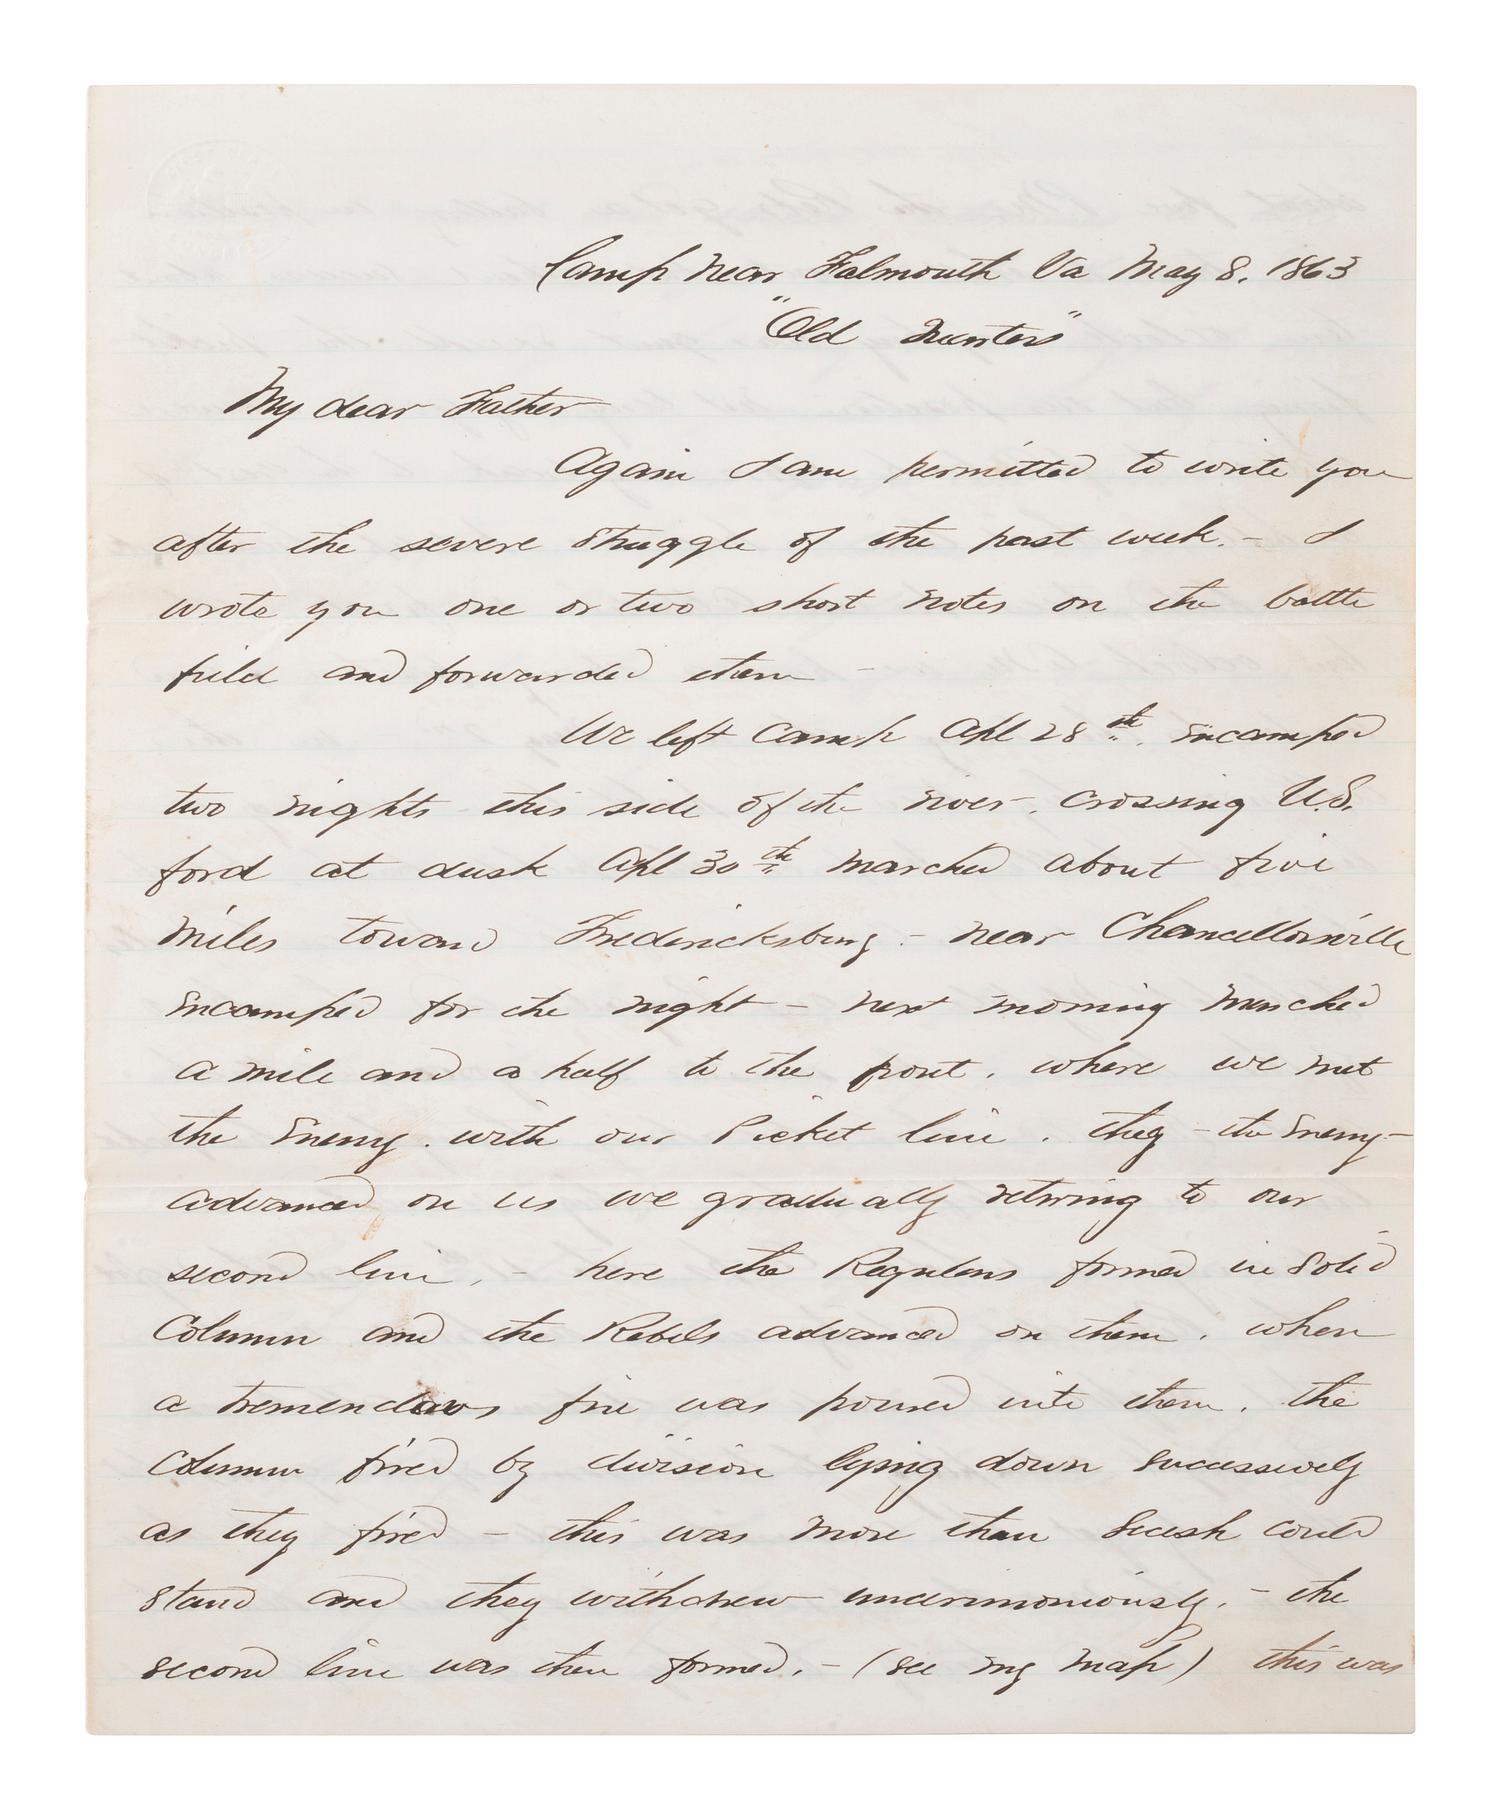 Camp near Falmouth Va May 8. 1863
"Old Quarters"
My dear Father
Again I am permitted to write you
after the severe struggle of the past week. – I
wrote you one or two short notes on the battle
field and forwarded them –
We left Camp Apl 28th. encamped
two nights this side of the river. crossing U.S.
ford at dusk Apl 30th marched about five
miles toward Fredericksburg – near Chancellorsville
encamped for the night – next morning marched
a mile and a half to the front. where we met
the Enemy. with our Picket line. they – the Enemy –
advanced on us we gradually retiring to our
second line. – here the Regulars formed in Solid
Column and the Rebels advanced on them. when
a tremendous fire was poured into them. the
column fired by division lying down successively
as they fired – this was more than Secesh could
stand and they withdrew unceremoniously. – the
second line was then formed. – (see my map) this was